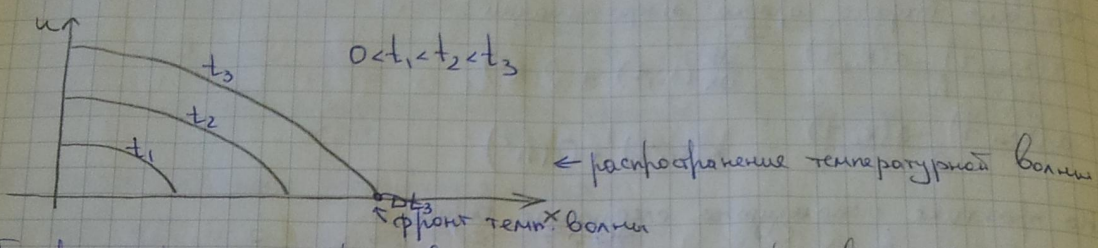 u
t₃
0<t₁<t₂<t₃
t₂
t₁
← распространение температурной волны
Dt₃
x
фронт темп. волны